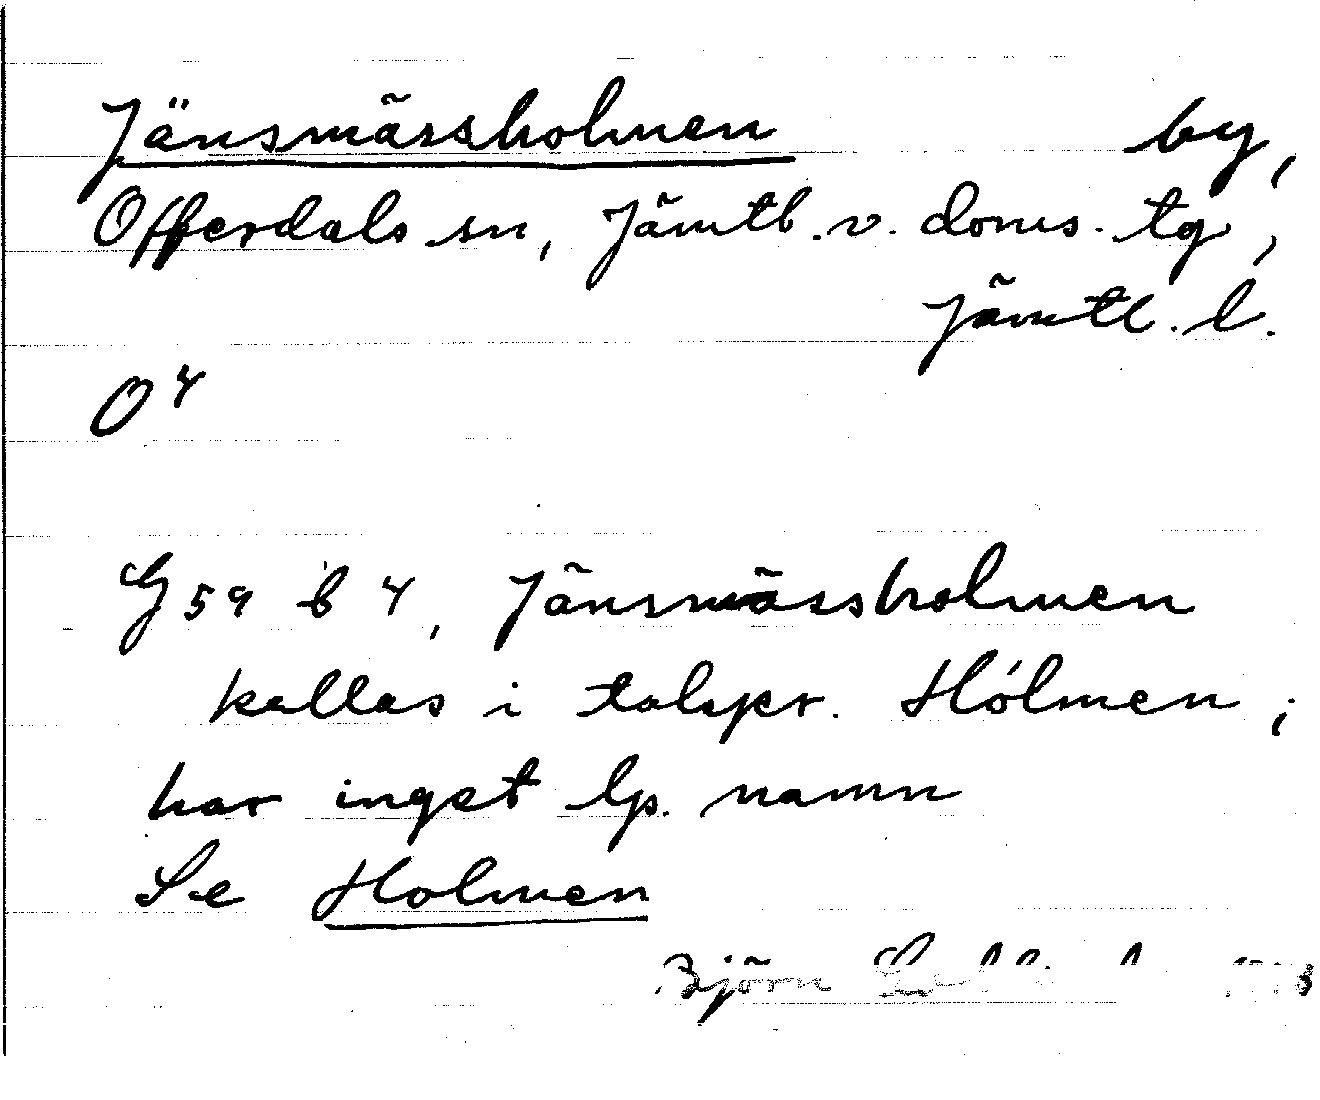 Jänsmässholmen by,
Offerdals sn, Jämtl. v. doms. tg,
Jämtl. l.
O4
G 59 b 4, Jänsmässholmen
kallas i talspr. Hólmen;
har inget lp. namn
Se Holmen
Björn